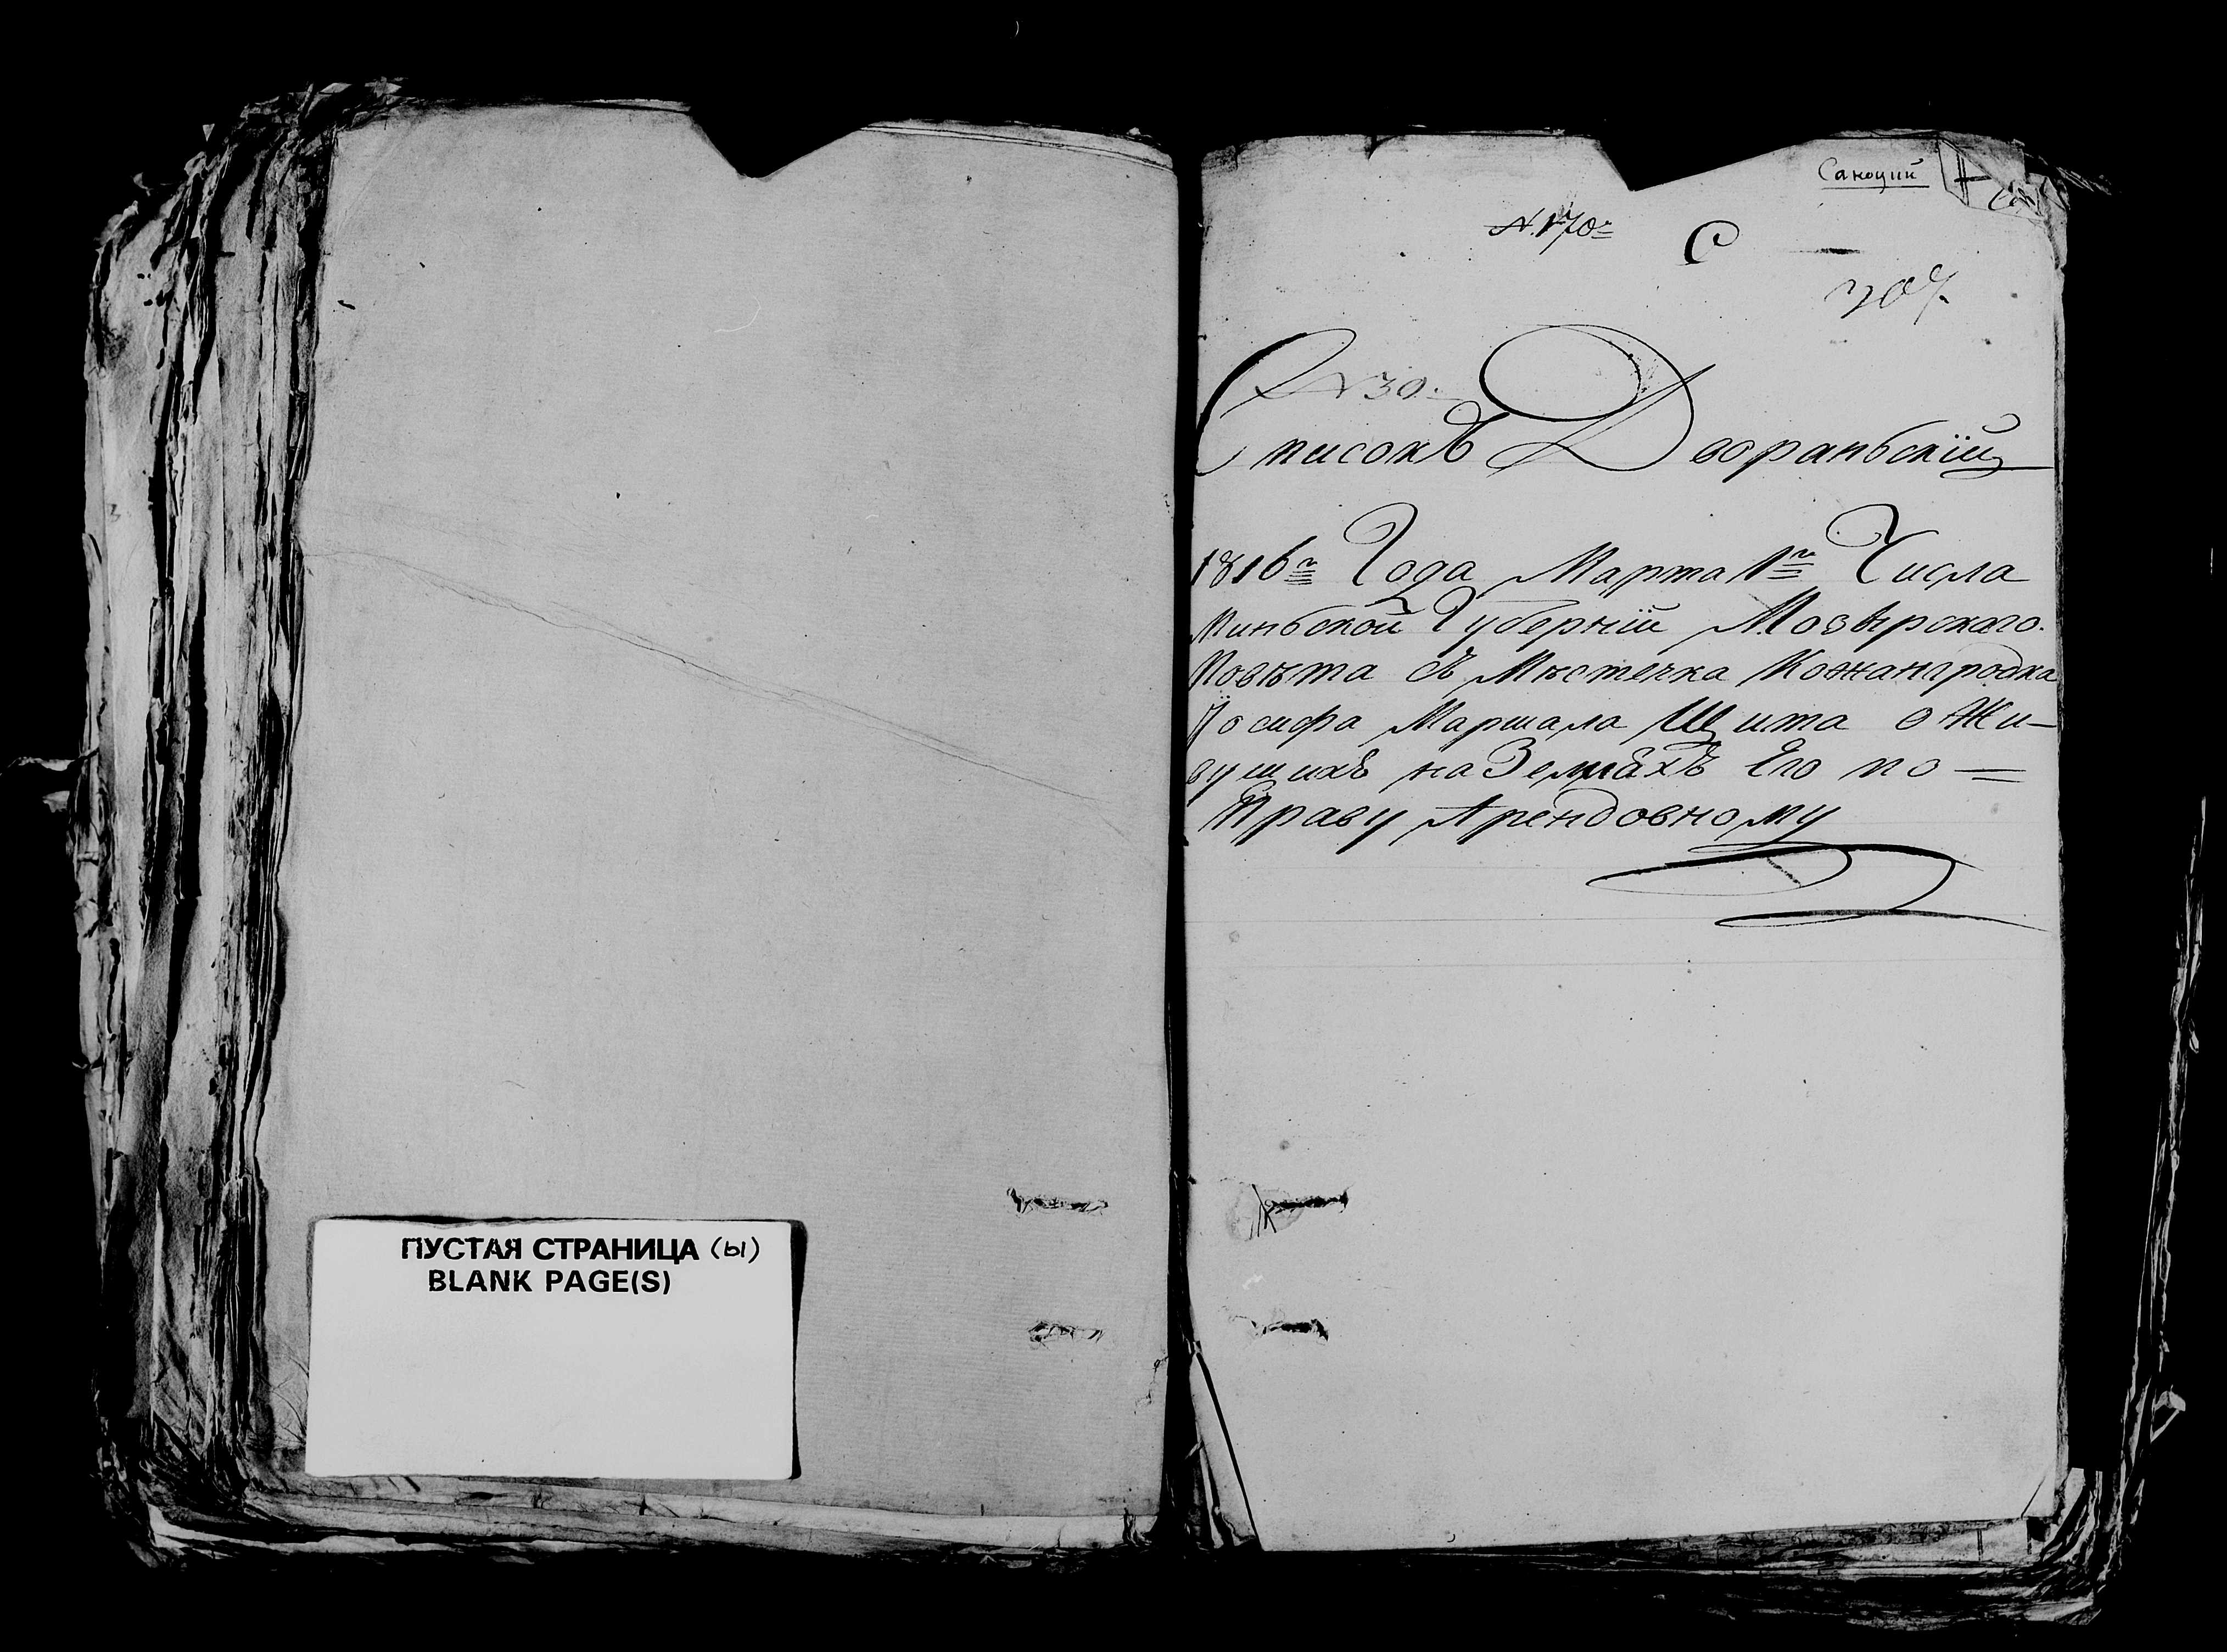 ПУСТАЯ СТРАНИЦА (ы)
BLANK PAGE(S)
Саноций
N. 170г
С
307.
N 30.
Списокъ Двораньскїй
1816го Года Марта 1го Числа
Миньской Губернїи Мозырскаго
Повѣта съ Мѣстечка Кожангродка
Йосифа Маршала Щита о Жи-
вущихъ на Земляхъ Его по =
Праву Арендовному